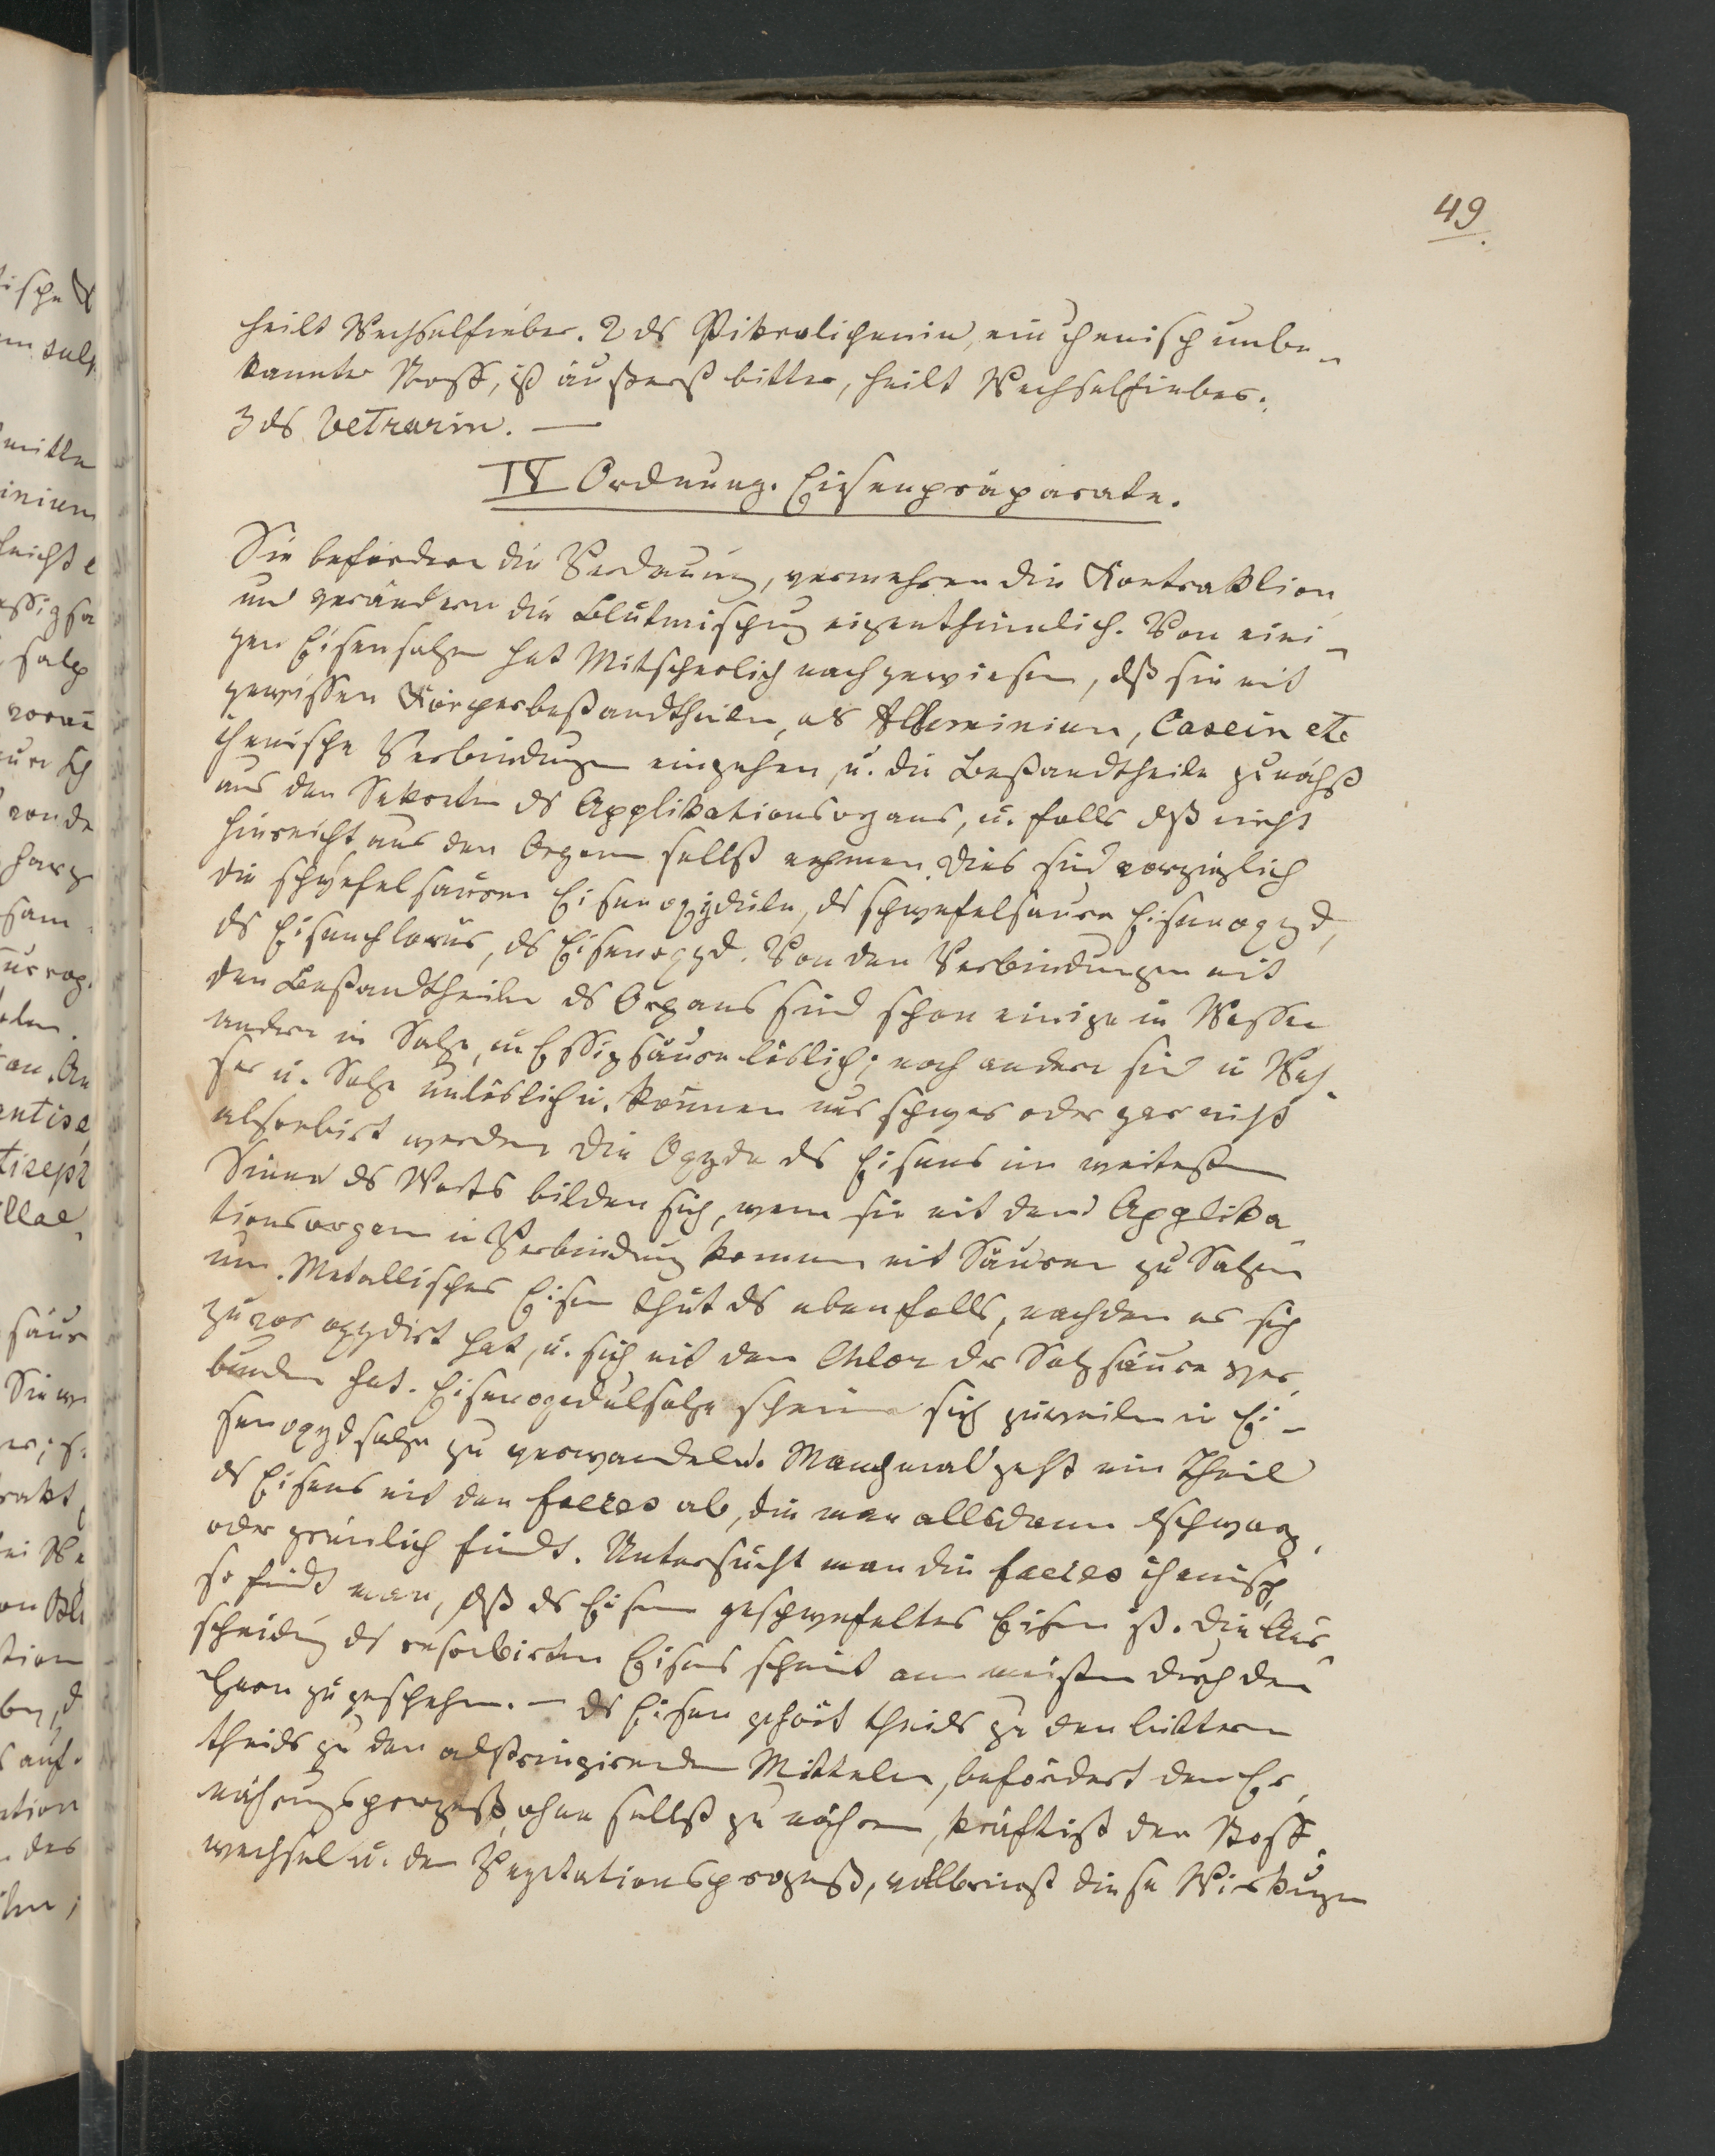 49.
heilt Wechselfieber. 2 ds Pikrolichenin, ein chemisch unbe-
kannter Stoff, ist äußerst bitter, heilt Wechselfieber.
3 ds Vetrarin. —
IV Ordnung. Eisenpräparate.
Sie befördern die Verdauung, vermehren die Kontraktion
und verändern die Blutmischung eigenthümlich. Von eini-
gen Eisensalzen hat Mitscherlich nachgewiesen, dß sie mit
gewissen Körperbestandtheilen, als Albuminium, Casein etc
chemische Verbindungen eingehen, u. die Bestandtheile zunächst
aus den Sekreten ds Applikationsorgans, u. falls dß nicht
hinreicht aus den Organen selbst nehmen. Dies sind vorzüglich
die schwefelsauren Eisenoxydule, ds schwefelsaure Eisenoxyd,
ds Eisenchlorür, ds Eisenoxyd. Von den Verbindungen mit
den Bestandtheilen ds Organs sind schon einige in Wasser
andere in Salz, in Essigsäure löslich; noch andere sind in Was-
ser u. Salz unlöslich u. können nur schwer oder gar nicht
absorbirt werden Die Oxyde ds Eisens im weitesten
Sinne ds Worts bilden sich, wenn sie mit dem Applika-
tionsorgan in Verbindung kommen mit Säuren zu Salzen
um. Metallisches Eisen thut ds ebenfalls, nachdem es sich
zuvor oxydirt hat, u. sich mit dem Chlor der Salzsäure ver-
bunden hat. Eisenoxydulsalze scheinen sich zuweilen in Ei-
senoxydsalze zu verwandeln. Manchmal geht ein Theil
ds Eisens mit den faeces ab, die man alsdann schwarz
oder grünlich findt. Untersucht man die faeces chemisch,
so findt man, dß ds Eisen geschwefeltes Eisen ist. Die Aus-
scheidung ds resorbirten Eisens scheint am meisten durch den
Harn zu geschehen. — Ds Eisen gehört theils zu den bittern
theils zu den adstringirenden Mitteln, befördert den Er-
nährungsprozeß, ohne selbst zu nähren, kräftigt den Stoff-
wechsel u. den Vegetationsprozeß, vollbringt diese Wirkungen